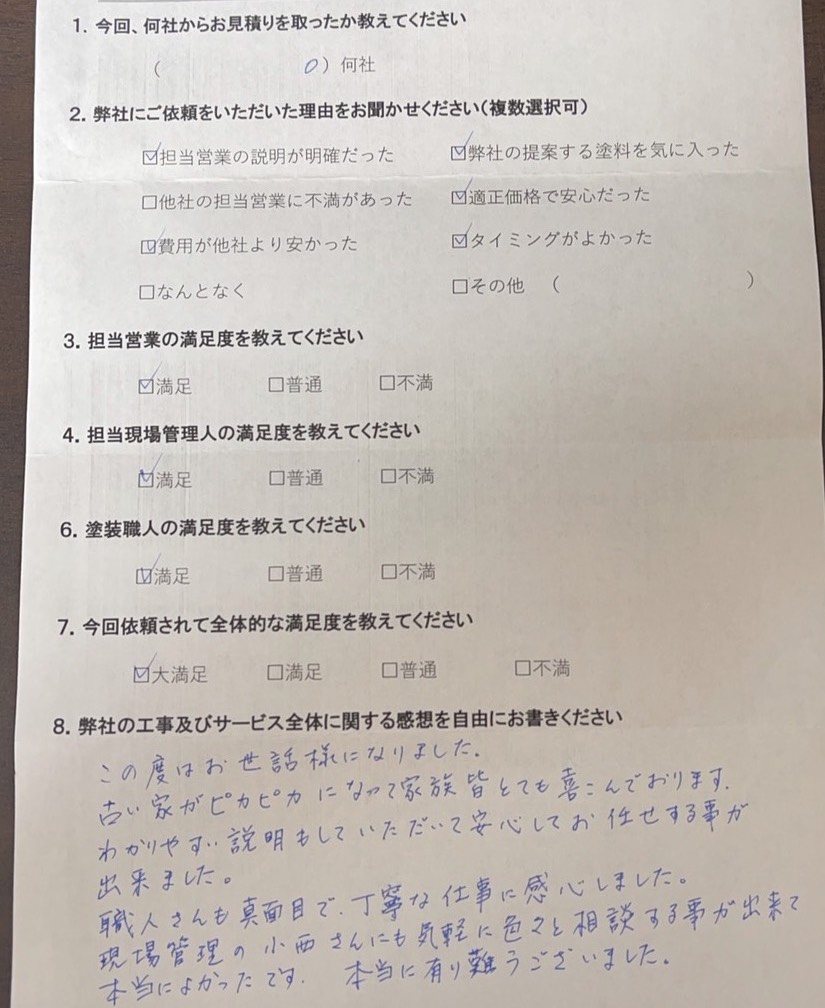 1. 今回、何社からお見積りを取ったか教えてください
( 0 ) 何社
2. 弊社にご依頼をいただいた理由をお聞かせください(複数選択可)
☑担当営業の説明が明確だった ☑弊社の提案する塗料を気に入った
□他社の担当営業に不満があった ☑適正価格で安心だった
☑費用が他社より安かった ☑タイミングがよかった
□なんとなく □その他 ( )
3. 担当営業の満足度を教えてください
☑満足 □普通 □不満
4. 担当現場管理人の満足度を教えてください
☑満足 □普通 □不満
6. 塗装職人の満足度を教えてください
☑満足 □普通 □不満
7. 今回依頼されて全体的な満足度を教えてください
☑大満足 □満足 □普通 □不満
8. 弊社の工事及びサービス全体に関する感想を自由にお書きください
この度はお世話様になりました。
古い家がピカピカになって家族皆とても喜こんでおります。
わかりやすい説明もしていただいて安心してお任せする事が
出来ました。
職人さんも真面目で、丁寧な仕事に感心しました。
現場管理の小西さんにも気軽に色々と相談する事が出来て
本当によかったです. 本当に有り難うございました。